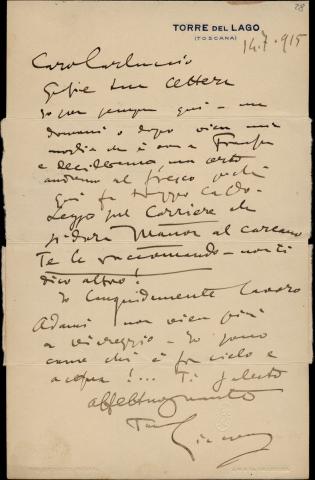 28
TORRE DEL LAGO
(TOSCANA)
14.7.915
Caro Carluccio
Grazie tua lettera
Io per sempre qui -
domani o dopo vien mia
moglie che è ora a
e decideremo un certo
andremo al fresco
qui fa troppo caldo -
Leggo sul Corriere che
si darà Manon al Carcano
Te la raccomando - non ti
dico altro!
Io languidamente lavoro
Adami non vien più
a viareggio - Io sono
come chi è fra cielo e
acqua!... Ti saluto
affettuosamente
Tuo
Giacomo